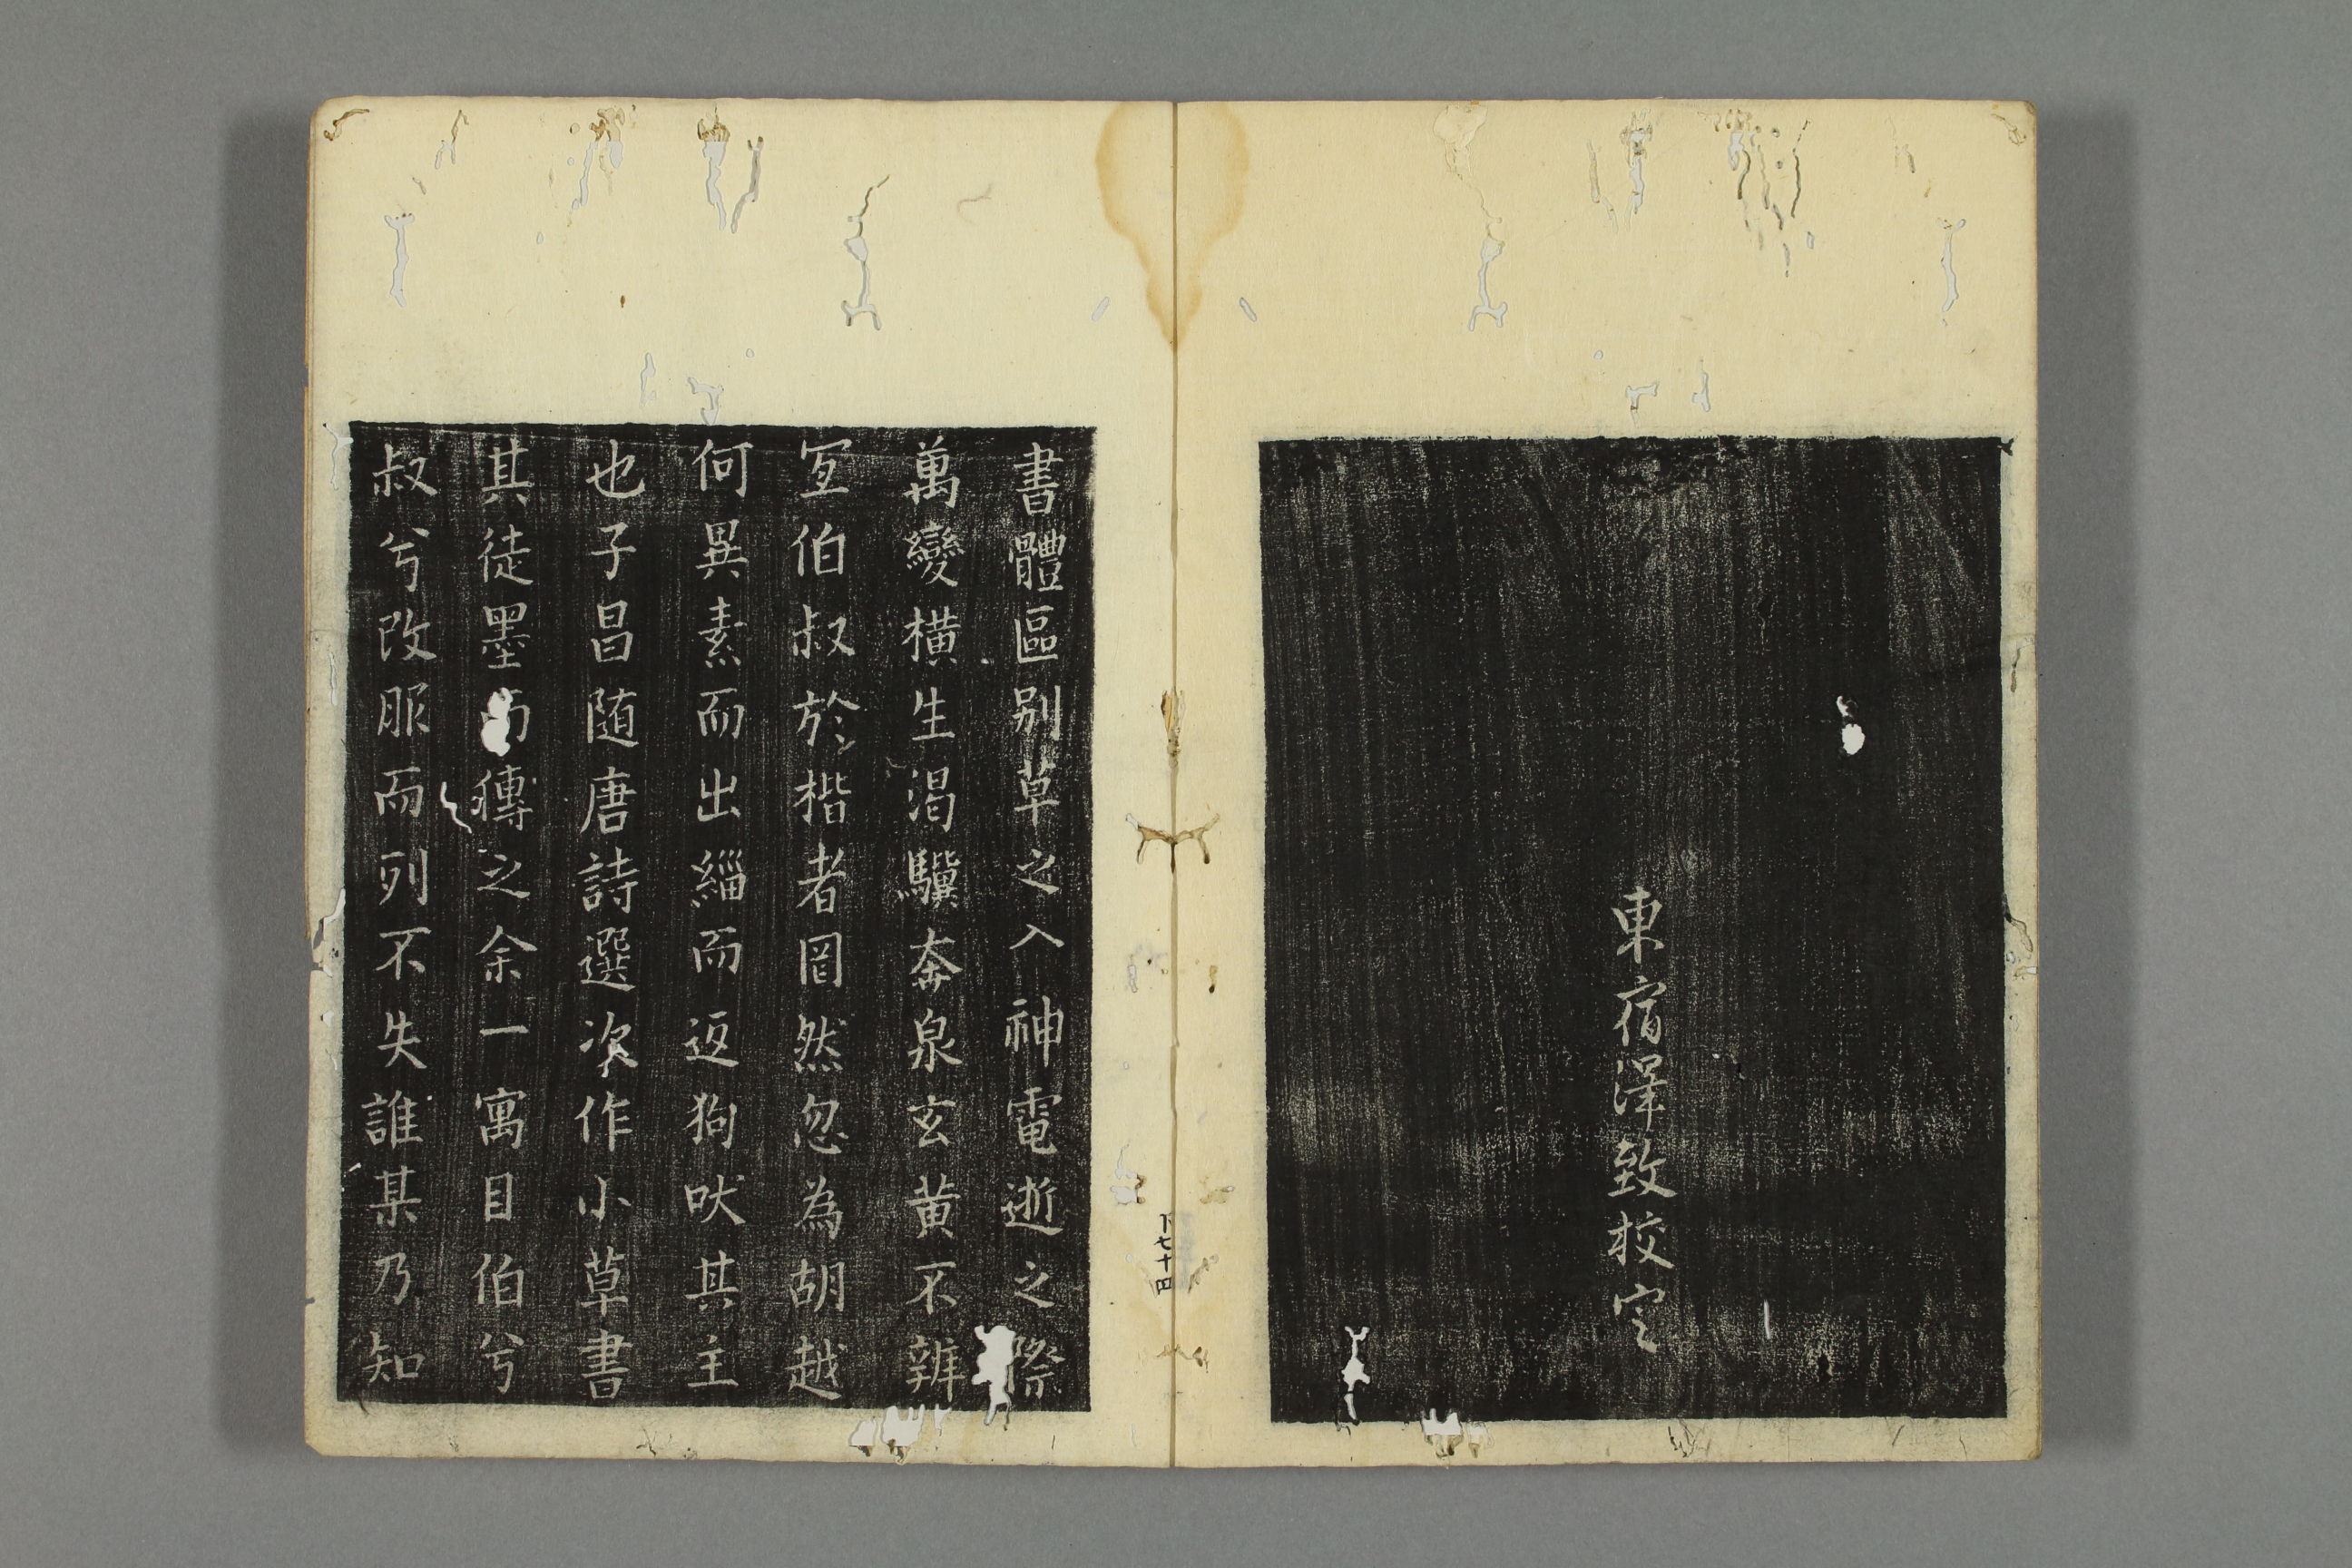 東宿澤致校定
下七十四
書體區别草之入神電逝之際
萬變横生渴驥奔泉玄黄不辨
宜伯叔於楷者罔然忽為胡越
何異素而出緇而返狗吠其主
也子昌随唐詩選次作小草書
其徒墨而傳之余一寓目伯兮
叔兮改服而列不失誰某乃知